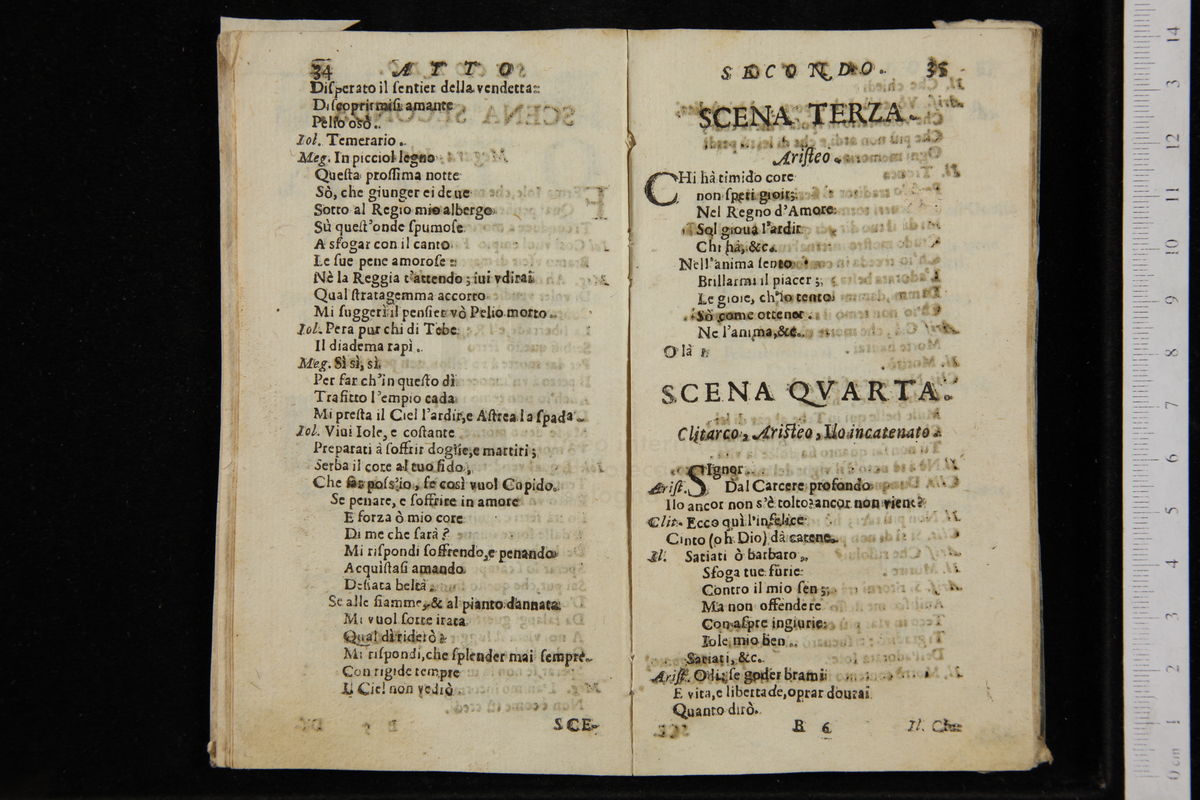 34 ATTO
Disperato il sentier della vendetta:
Discoprirmisi amante
Pelio osò.
Iol. Temerario.
Meg. In picciol legno
Questa prossima notte
Sò, che giunger ei deue
Sotto al Regio mio albergo
Sù quest'onde spumose
A sfogar con il canto
Le sue pene amorose:
Nè la Reggia t'attendo; iui vdirai
Qual stratagemma accorto
Mi suggerì il pensier vò Pelio morto.
Iol. Pera pur chi di Tebe
Il diadema rapì.
Meg. Sì sì, sì
Per far ch'in questo dì
Trafitto l'empio cada
Mi presta il Ciel l'ardir, e Astrea la spada.
Iol. Viui Iole, e costante
Preparati à soffrir doglie, e martiri;
Serba il core al tuo fido,
Che far poss'io, se così vuol Cupido.
Se penare, e soffrire in amore
E forza ò mio core
Di me che sarà?
Mi rispondi soffrendo, e penando
Acquistasi amando
Desiata beltà.
Se alle fiamme, & al pianto dannata
Mi vuol sorte irata
Qual dì riderò?
Mi rispondi, che splender mai sempre
Con rigide tempre
Il Ciel non vedrò.
SCE-
SECONDO. 35
SCENA TERZA.
Aristeo.
CHi hà timido core
non speri gioir;
Nel Regno d'Amore
Sol gioua l'ardir
Chi hà, &c.
Nell'anima sento
Brillarmi il piacer;
Le gioie, ch'io tento
Sò come ottener.
Ne l'anima, &c.
Olà
SCENA QVARTA.
Clitarco, Aristeo, Ilo incatenato.
SIgnor.
Arist. Dal Carcere profondo
Ilo ancor non s'è tolto? ancor non viene?
Clit. Ecco quì l'infelice
Cinto (oh Dio) dà catene.
Il. Satiati ò barbaro
Sfoga tue furie
Contro il mio sen;
Ma non offendere
Con aspre ingiurie
Iole mio ben.
Satiati, &c.
Arist. Odi; se goder brami
E vita, e libertade, oprar dourai
Quanto dirò.
B 6 Il. Che